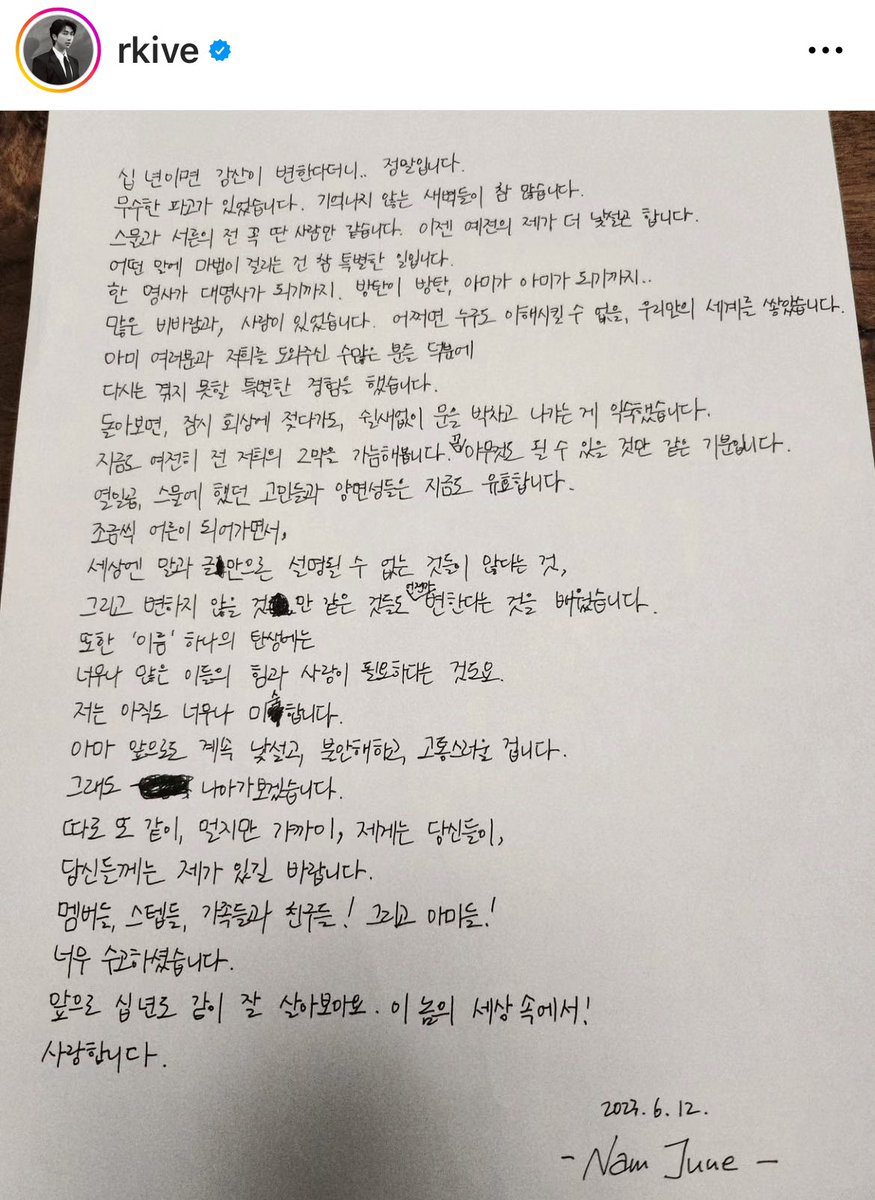 rkive
십 년이면 강산이 변한다더니.. 정말입니다.
무수한 파고가 있었습니다. 기억나지 않는 새벽들이 참 많습니다.
스물과 서른의 전 꼭 딴 사람만 같습니다. 이젠 예전의 제가 더 낯설곤 합니다.
어떤 말에 마법이 걸리는 건 참 특별한 일입니다.
한 명사가 대명사가 되기까지. 방탄이 방탄, 아미가 아미가 되기까지..
많은 비바람과, 사랑이 있었습니다. 어쩌면 누구도 이해시킬 수 없을, 우리만의 세계를 쌓았습니다.
아미 여러분과 저희를 도와주신 수많은 분들 덕분에
다시는 겪지 못할 특별한 경험을 했습니다.
돌아보면, 잠시 회상에 젖다가도, 쉴새없이 문을 박차고 나가는 게 익숙했습니다.
지금도 여전히 전 저희의 2막을 가늠해봅니다. 꼭 아무것도 될 수 있을 것만 같은 기분입니다.
열일곱, 스물에 했던 고민들과 양면성들은 지금도 유효합니다.
조금씩 어른이 되어가면서,
세상엔 말과 글만으론 설명될 수 없는 것들이 많다는 것,
그리고 변하지 않을 것만 같은 것들도 언젠가 변한다는 것을 배웠습니다.
또한 '이름' 하나의 탄생에는
너무나 많은 이들의 힘과 사랑이 필요하다는 것도요.
저는 아직도 너무나 미숙합니다.
아마 앞으로도 계속 낯설고, 불안해하고, 고통스러울 겁니다.
그래도 나아가보겠습니다.
따로 또 같이, 멀지만 가까이, 제게는 당신들이,
당신들께는 제가 있길 바랍니다.
멤버들, 스텝들, 가족들과 친구들! 그리고 아미들!
너무 수고하셨습니다.
앞으로 십년도 같이 잘 살아보아요. 이 놈의 세상 속에서!
사랑합니다.
2023. 6. 12.
- Nam June -